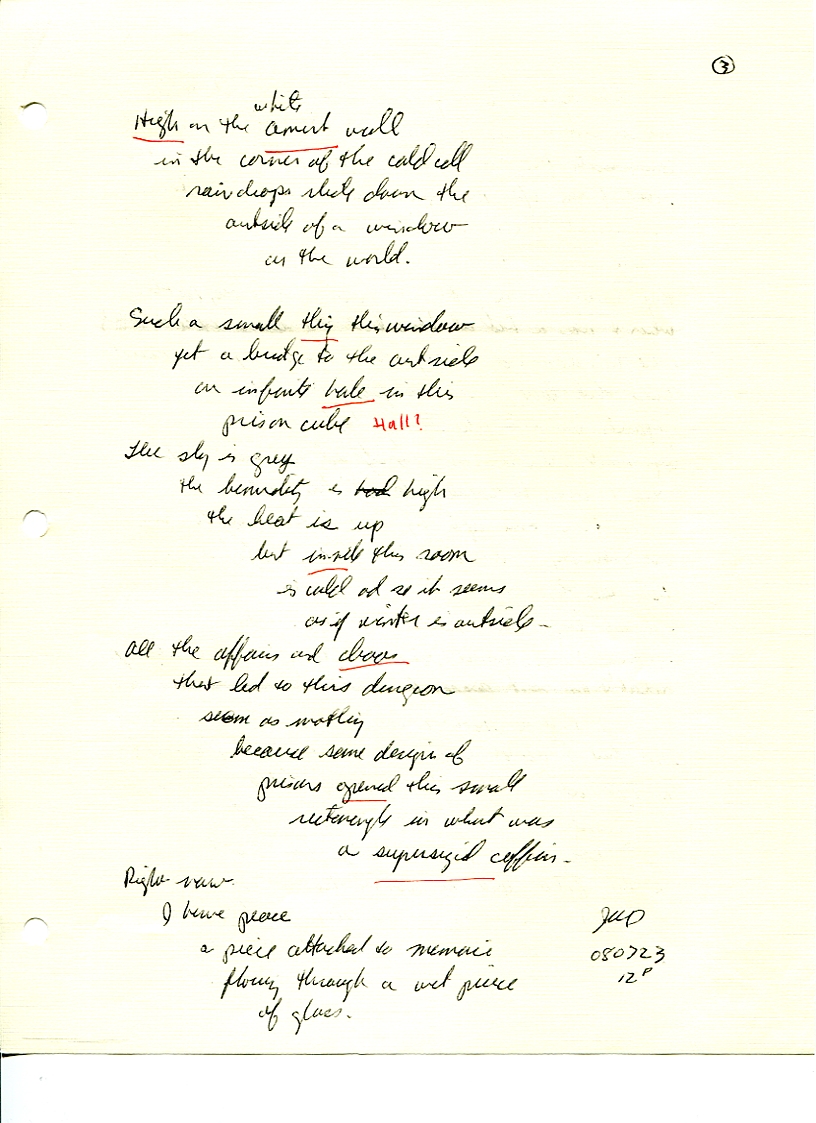 ③
white
High on the cement wall
in the corner of the cold cell
raindrops slide down the
outside of a window
on the world.
Such a small thing this window
yet a bridge to the outside
an infinite hole in this
prison cube Hall?
The sky is grey
the humidity is had high
the heat is up
but inside this room
is cold and so it seems
as if winter is outside -
All the affairs and chaos
that led to this dungeon
seem as nothing
because some design of
prisons opened this small
rectangle in what was
a supersized coffin -
Right now
I have peace
a piece attached to memoir
flowing through a wet piece
of glass.
080723
12P